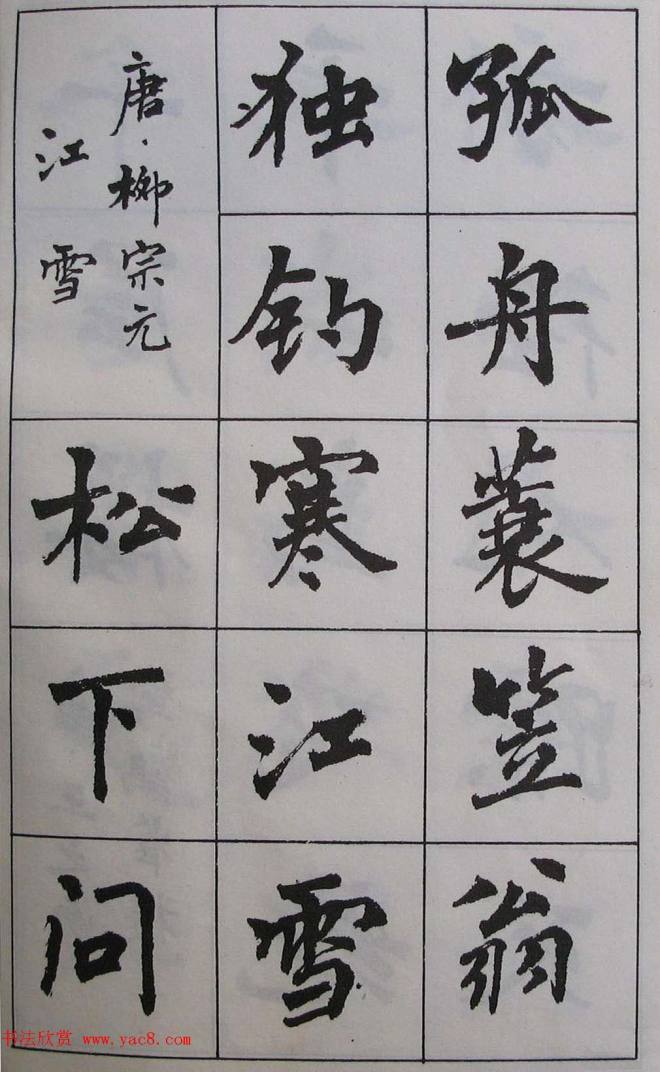 孤舟蓑笠翁
独钓寒江雪
唐·柳宗元
江雪
松下问
书法欣赏 www.yac8.com